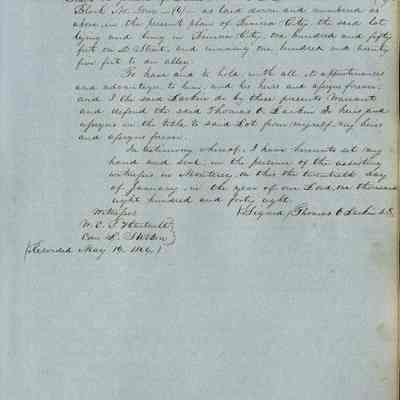 Block No. Four (4) as laid down and numbered as
above, in the present plan of Benicia City, the said lot
lying and being in Benicia City one hundred and fifty
feet on D Street, and running one hundred and twenty
five feet to an alley.
To have and to hold, with all its appurtenances
and advantages to him, and his heirs and assigns forever,
and I the said Larkin do by these presents Warrant
and defend the said Thomas O. Larkin his heirs and
assigns in the title to said Lot from myself, my heirs
and assigns forever.
In testimony whereof, I have hereunto set my
hand and seal, in the presence of the assisting
witnesses in Monterey, on this the twentieth day
of January, in the year of our Lord, one thousand
eight hundred and forty eight.
Witnesses (Signed) Thomas O Larkin L.S.
W. C. S.
Recorded May 19.